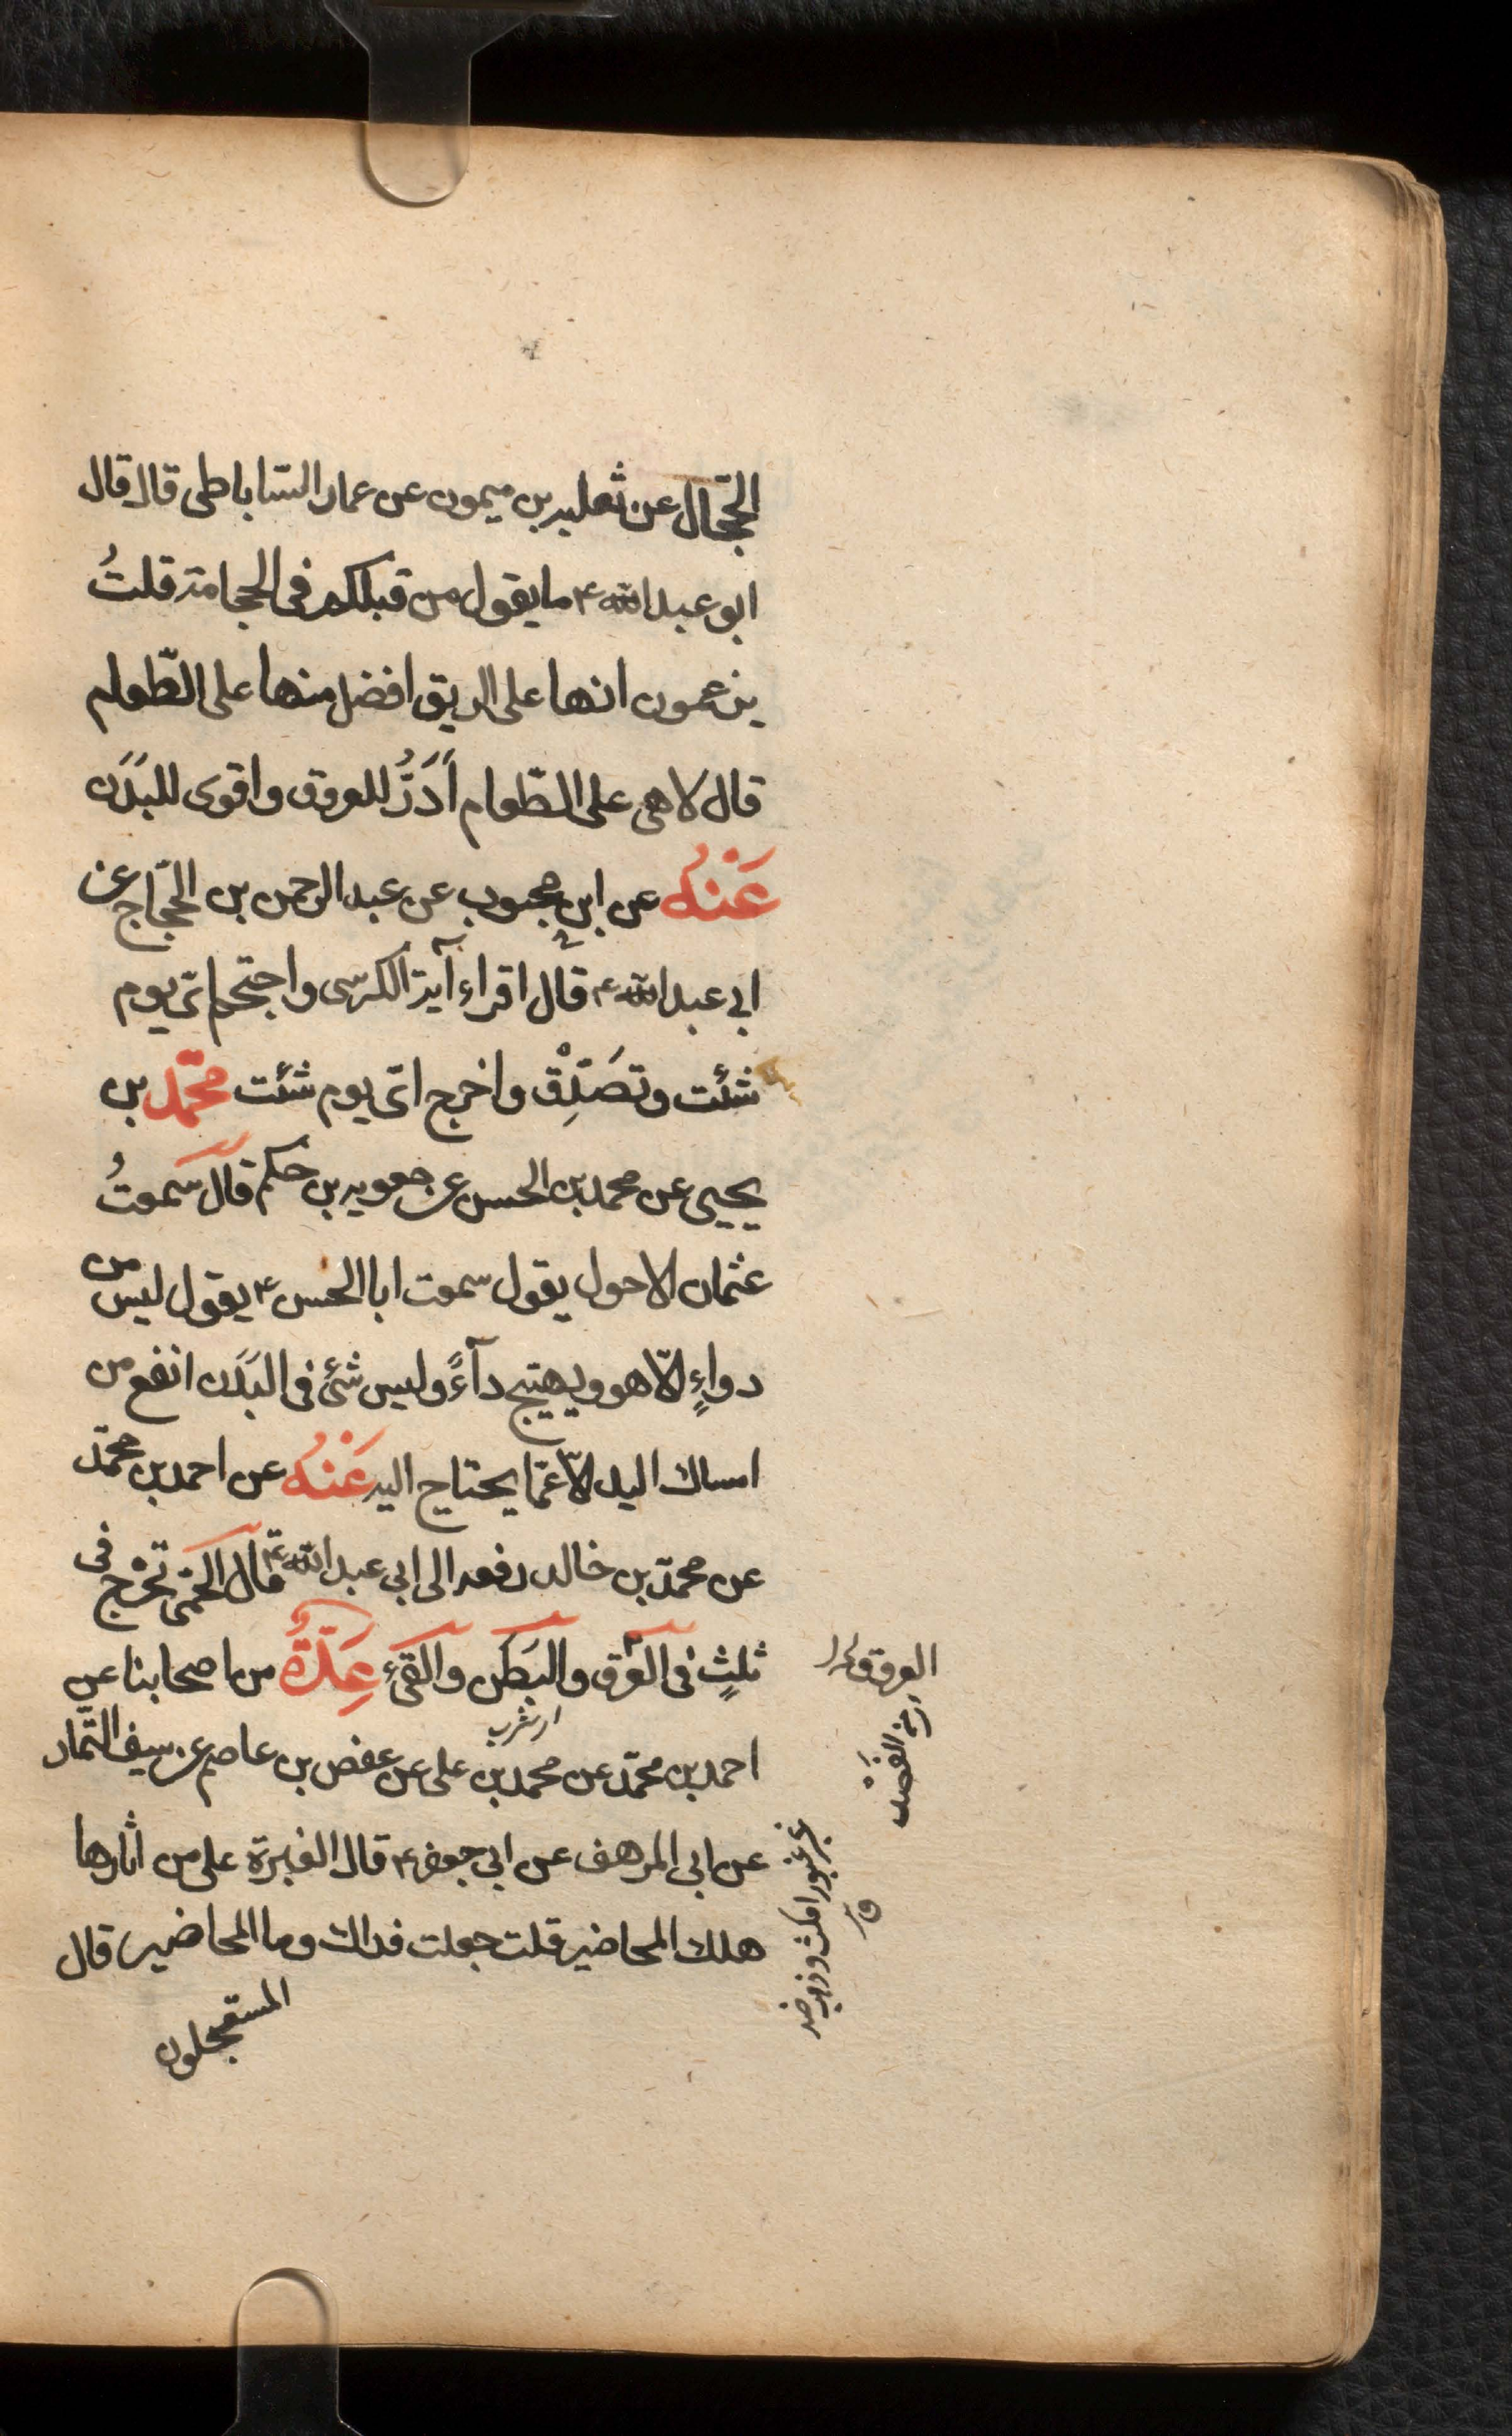 الحجّال عن ثعلبه بن ميمون عن عمار السّاباطى قال قال
ابو عبد الله ع ما يقول من قبلكم فى الحجامة قلتُ
يزعمون انها على الريق افضل منها على الطّعام
قال لا هى على الطّعام أَدَرُّ للعروق واقوى للبَدَن
عَنْهُ عن ابن محبوب عن عبد الرحمن بن الحجّاج عن
ابى عبد الله ع قال اقراء آية الكرسى واحتجم اىّ يوم
شئت وتصَدَّقْ واخرج اىّ يوم شئت محمّد بن
يحيى عن محمد بن الحسن عن معويه بن حكم قال سمعتُ
عثمان الاحول يقول سمعت ابا الحسن ع يقول ليس من
دواءٍ الّا هو ويهيّج دآءً وليس شئ فى البَدَن انفع من
امساك اليد الّا عمّا يحتاج اليه عَنْهُ عن احمد بن محمّد
عن محمّد بن خالد رفعه الى ابى عبد الله ع قال الحمّى تخرُج فى
ثلثٍ فى العَرَق والبَطن والقىء عِدَّةٌ من اصحابنا عن
احمد بن محمّد عن محمد بن على عن عفص بن عاصم عن سيف التّمار
عن ابى المرهف عن ابى جعفر ع قال الغبرة على من اثارها
هلك المحاضير قلت جعلت فداك وما المحاضير قال
المستعجلون
العروق
الفَصْد
غبر غبورا مكث وذهب ضد